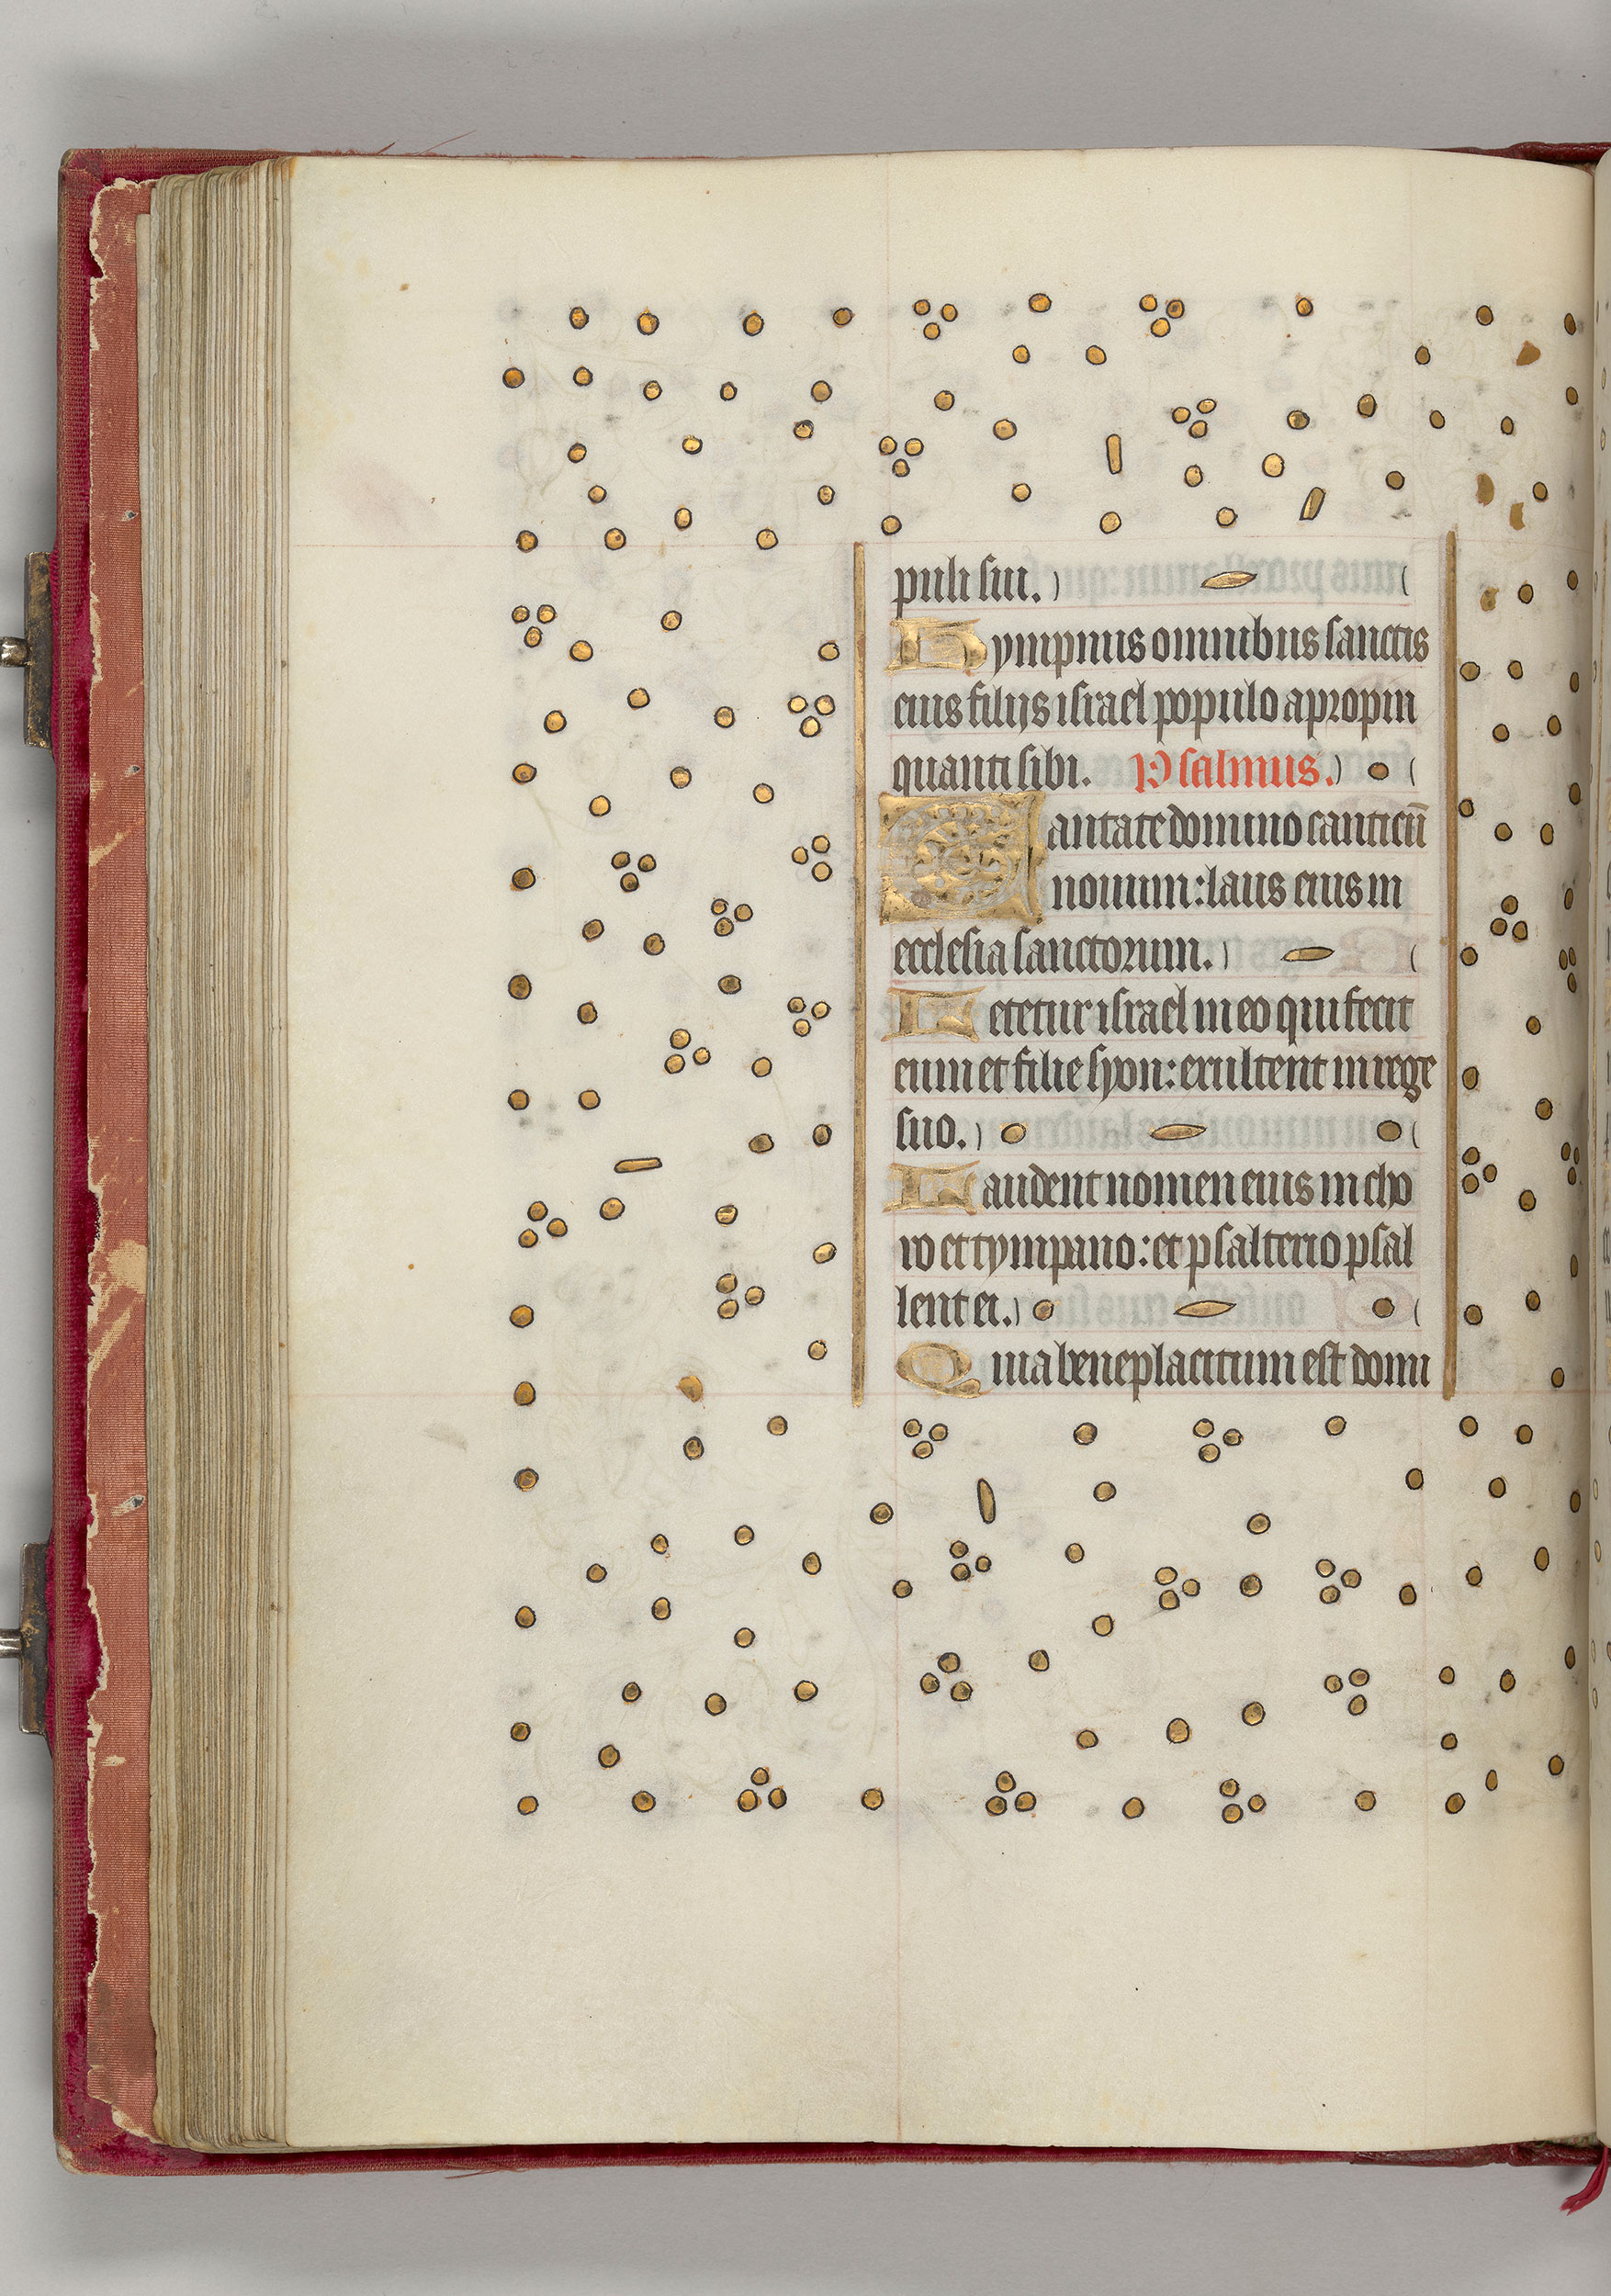 puli sui.
Hympnus omnibus sanctis
eius filijs israel populo apropin
quanti sibi. Psalmus.
Cantate domino canticū
nouum: laus eius in
ecclesia sanctorum.
Letetur israel in eo qui fecit
eum et filie syon: exultent in rege
suo.
Laudent nomen eius in cho
ro et tympano: et psalterio psal
lent ei.
Quia beneplacitum est domi